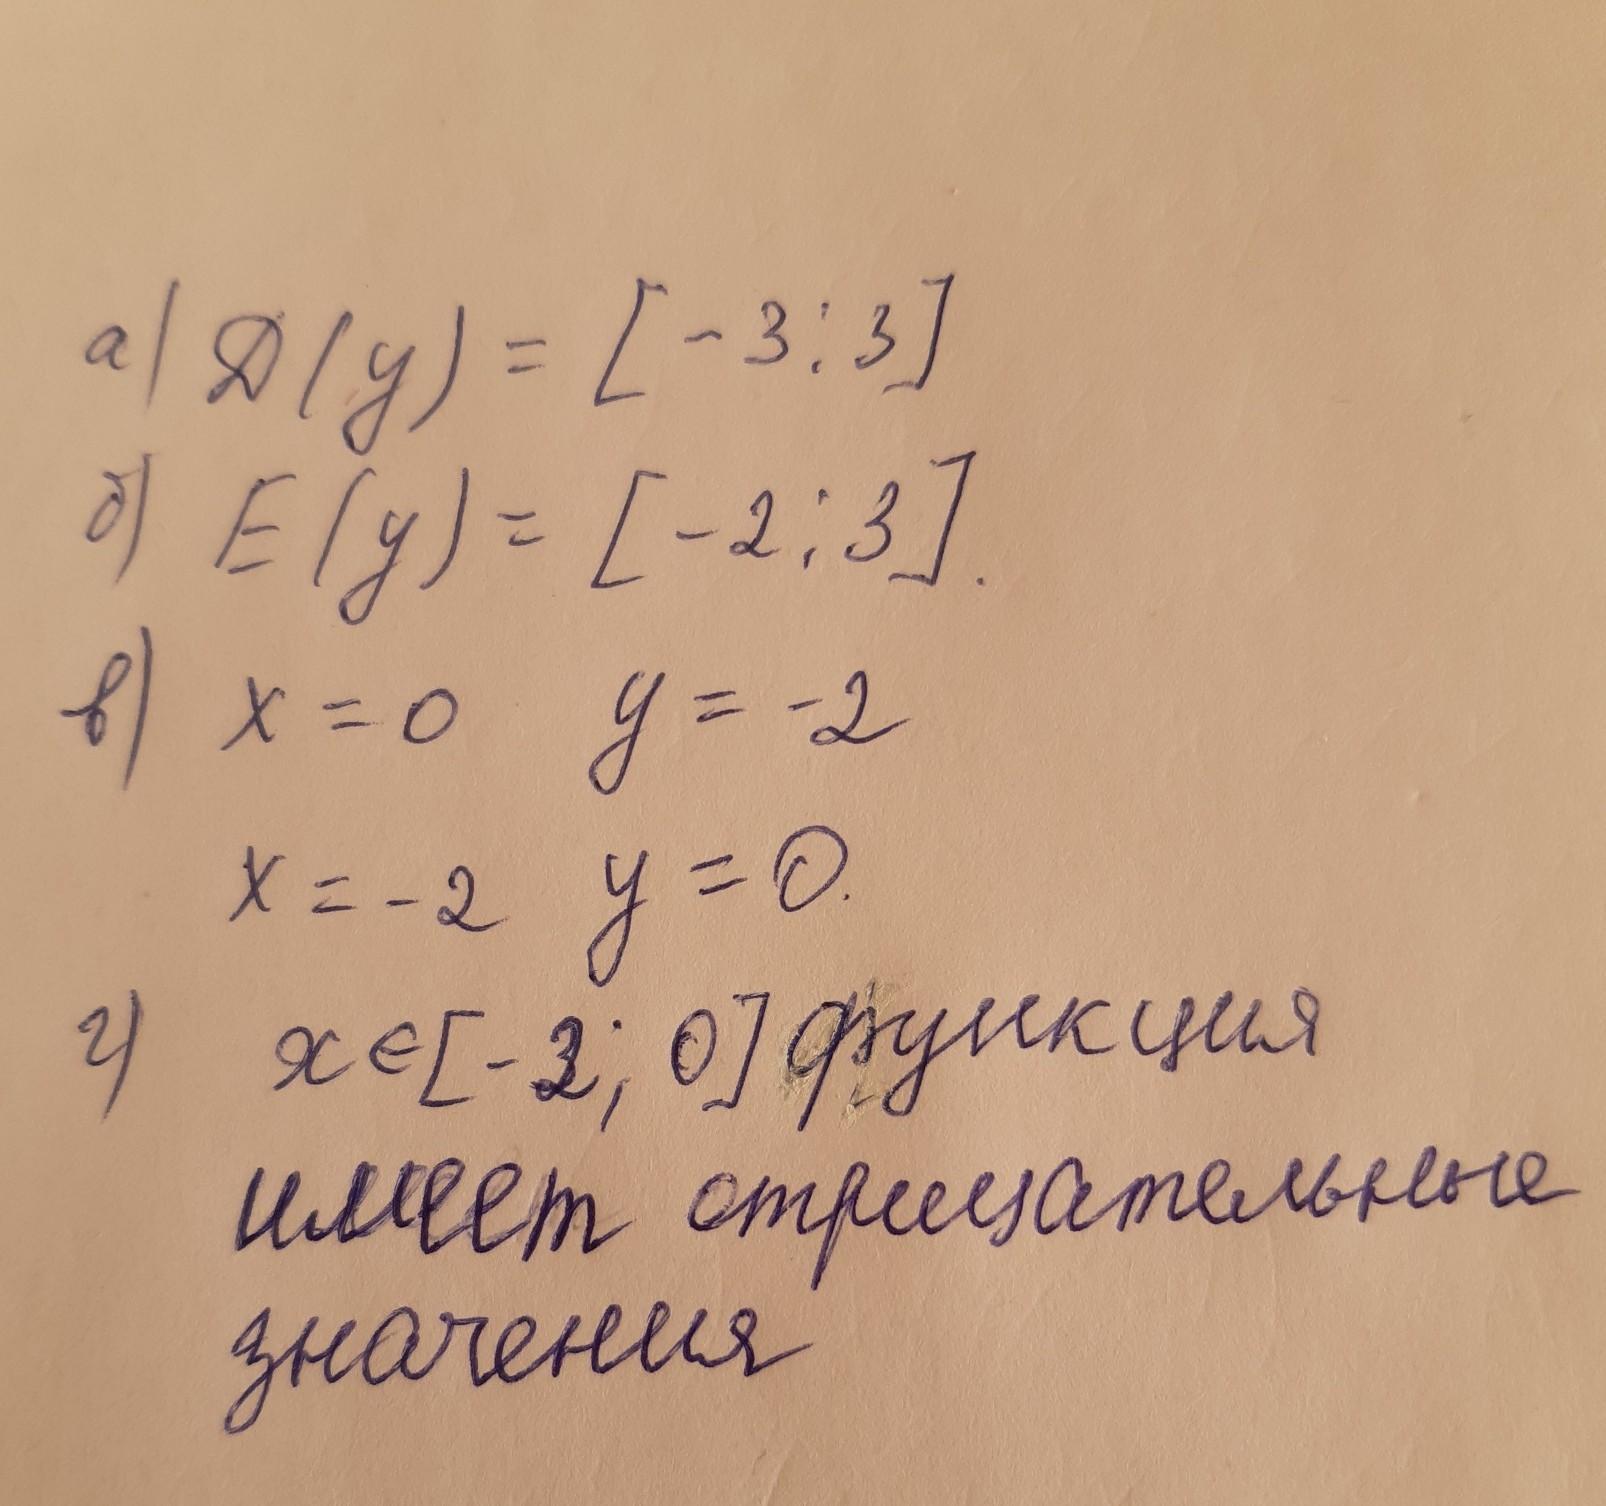 а) D(y) = [-3; 3]
б) E(y) = [-2; 3].
в) x = 0 y = -2
x = -2 y = 0.
г) x ∈ [-2; 0] функция
имеет отрицательные
значения